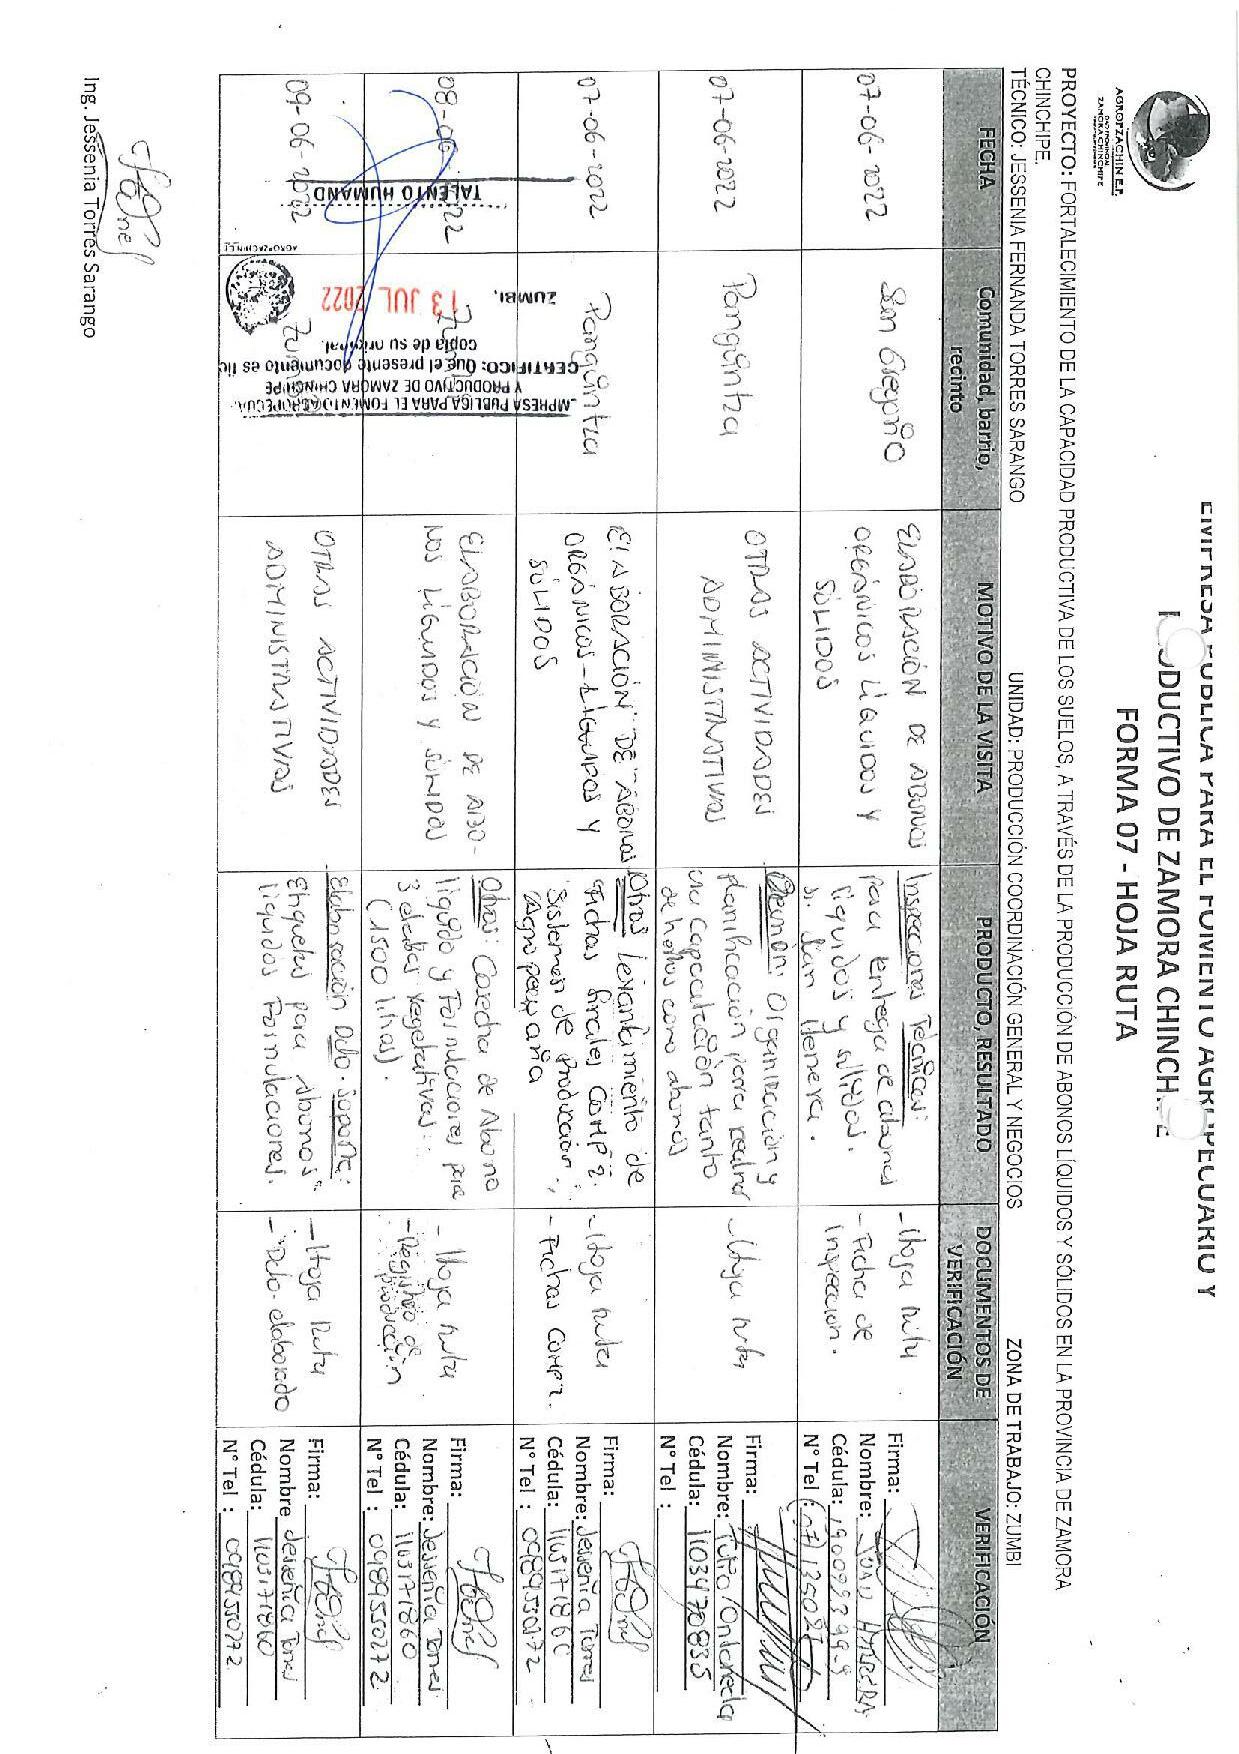 AGROPZACHIN E.P.
ZAMORA CHINCHIPE
EMPRESA PÚBLICA PARA EL FOMENTO AGROPECUARIO Y
PRODUCTIVO DE ZAMORA CHINCHIPE
FORMA 07 - HOJA RUTA
PROYECTO: FORTALECIMIENTO DE LA CAPACIDAD PRODUCTIVA DE LOS SUELOS, A TRAVÉS DE LA PRODUCCIÓN DE ABONOS LÍQUIDOS Y SÓLIDOS EN LA PROVINCIA DE ZAMORA
CHINCHIPE.
TÉCNICO: JESSENIA FERNANDA TORRES SARANGO UNIDAD: PRODUCCIÓN COORDINACIÓN GENERAL Y NEGOCIOS ZONA DE TRABAJO: ZUMBI
FECHA
Comunidad, barrio,
recinto
MOTIVO DE LA VISITA
PRODUCTO, RESULTADO
DOCUMENTOS DE
VERIFICACIÓN
VERIFICACIÓN
07-06-2022
San Gregorio
ELABORACIÓN DE ABONOS
ORGÁNICOS LÍQUIDOS Y
SÓLIDOS
Inspecciones Técnicas:
para entega de abonos
líquidos y sólidos.
- Hoja ruta
- Ficha de
Inspeccion.
Firma:
Nombre:
Cédula:
N° Tel :
07-06-2022
Panguintza
OTRAS ACTIVIDADES
ADMINISTRATIVAS
Reunion: Organización y
planificación para realizar
una capacitación tanto
- Hoja ruta
Firma:
Nombre: Tulio Ontaneda
Cédula: 1103470835
N° Tel :
07-06-2022
Panguintza
ELABORACIÓN DE ABONOS
ORGÁNICOS - LÍQUIDOS Y
SÓLIDOS
Otros Levantamiento de
Fichas finales COMP2.
Sistemas de Producción,
Agropecuaria
- Hoja ruta
- Fichas COMP2.
Firma:
Nombre: Jessenia Torres
Cédula: 1105171860
N° Tel : 0989550272
08-06-2022
Zumbi
ELABORACIÓN DE ABO-
NOS LÍQUIDOS Y SÓLIDOS
Otros: Cosecha de Abono
líquido y Formulaciones para
3 etapas vegetativas:
(1500 litros).
- Hoja ruta
- Registro de
producción
Firma:
Nombre: Jessenia Torres
Cédula: 1105171860
N° Tel : 0989550272
09-06-2022
Zumbi
OTRAS ACTIVIDADES
ADMINISTRATIVAS
Elaboración Dcto. Soporte:
Etiquetas para abonos
líquidos Formulaciones.
- Hoja Ruta
- Dcto. elaborado
Firma:
Nombre Jessenia Torres
Cédula: 1105171860
N° Tel : 0989550272
EMPRESA PUBLICA PARA EL FOMENTO AGROPECUA
Y PRODUCTIVO DE ZAMORA CHINCHIPE
CERTIFICO: Que el presente documento es fie
copia de su original.
ZUMBI, 13 JUL 2022
TALENTO HUMANO
Ing. Jessenia Torres Sarango